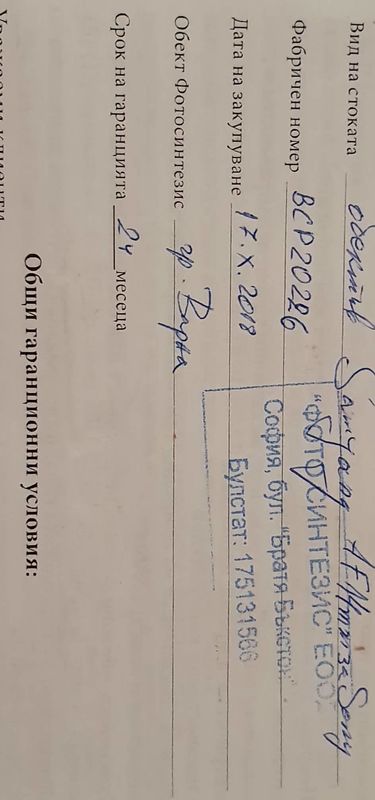 Вид на стоката обектив Samyang AF 14mm за Sony
Фабричен номер BCP20226
"ФОТОСИНТЕЗИС" ЕООД
София, бул. "Братя Бъкстон"
Булстат: 175131566
Дата на закупуване 17.X.2018
Обект Фотосинтезис гр. Варна
Срок на гаранцията 24 месеца
Общи гаранционни условия: